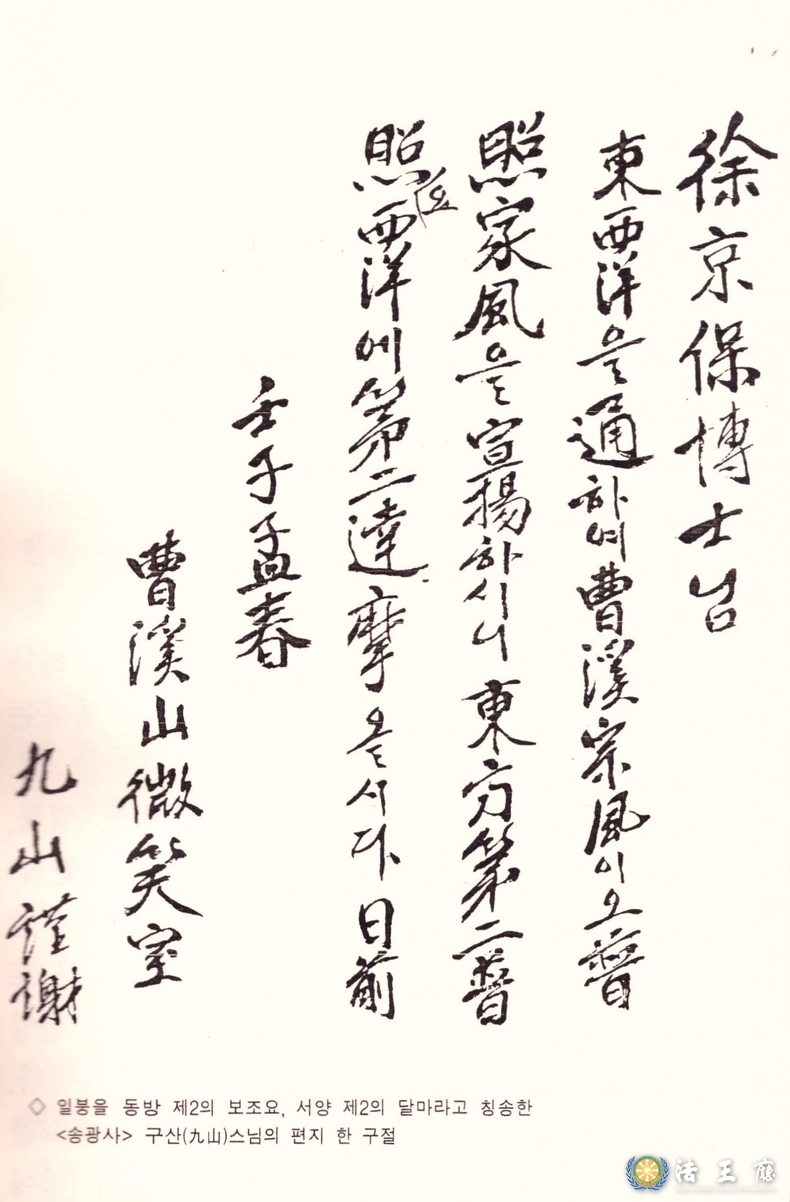 徐京保博士님
東西洋을通하여曹溪宗風이오普
照家風을宣揚하시니東方第二普
照요西洋에第二達摩올시다日前
壬子孟春
曹溪山微笑室
九山謹謝
◇ 일붕을 동방 제2의 보조요, 서양 제2의 달마라고 칭송한
<송광사> 구산(九山)스님의 편지 한 구절
法王廳